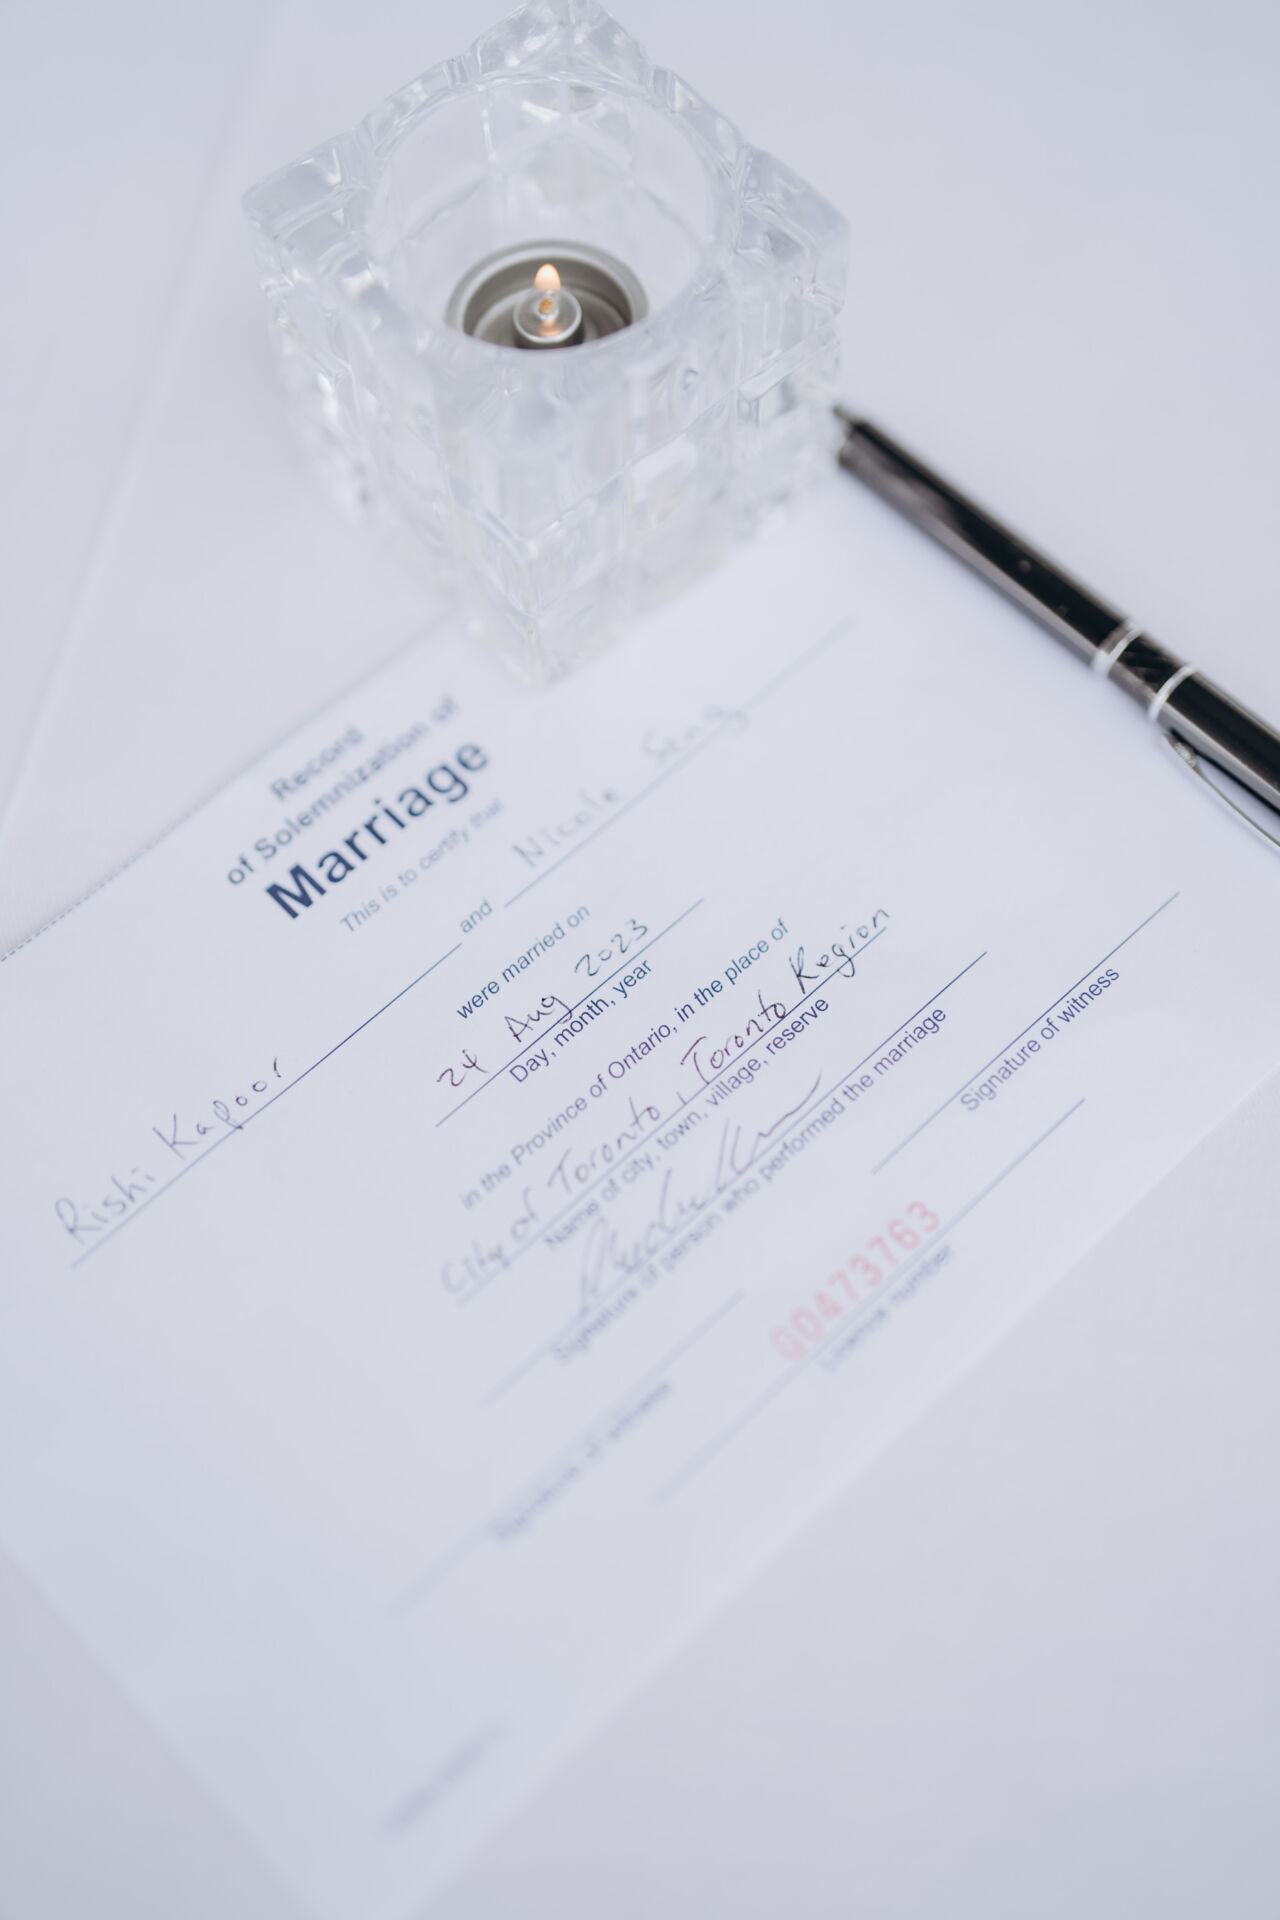 Record
of Solemnization of
Marriage
This is to certify that
Rishi Kapoor and Nicole
were married on
24 Aug 2023
Day, month, year
in the Province of Ontario, in the place of
City of Toronto, Toronto Region
Name of city, town, village, reserve
Signature of person who performed the marriage
Signature of witness
Signature of witness
00473763
Licence number